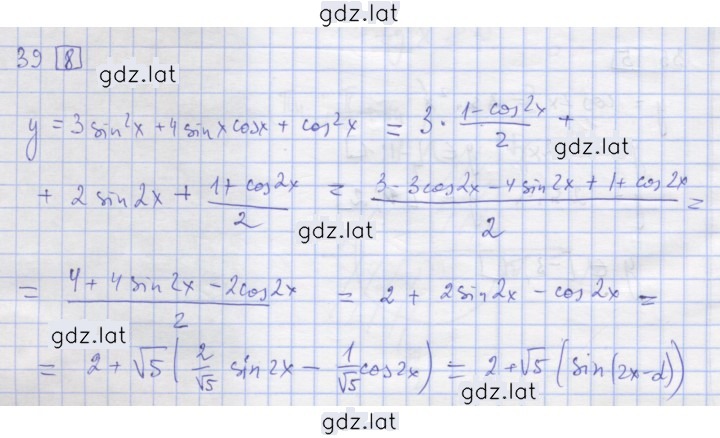 gdz.lat
39 8
gdz.lat
y = 3 sin²x + 4 sin x cos x + cos²x = 3 · (1 - cos2x)/2 +
gdz.lat
+ 2 sin 2x + (1 + cos2x)/2 = (3 - 3cos2x - 4 sin 2x + 1 + cos 2x)/2 =
gdz.lat
= (4 + 4 sin 2x - 2cos2x)/2 = 2 + 2sin2x - cos 2x =
gdz.lat
= 2 + √5 ( 2/√5 sin 2x - 1/√5 cos 2x ) = 2 + √5 ( sin (2x-α) )
gdz.lat
gdz.lat